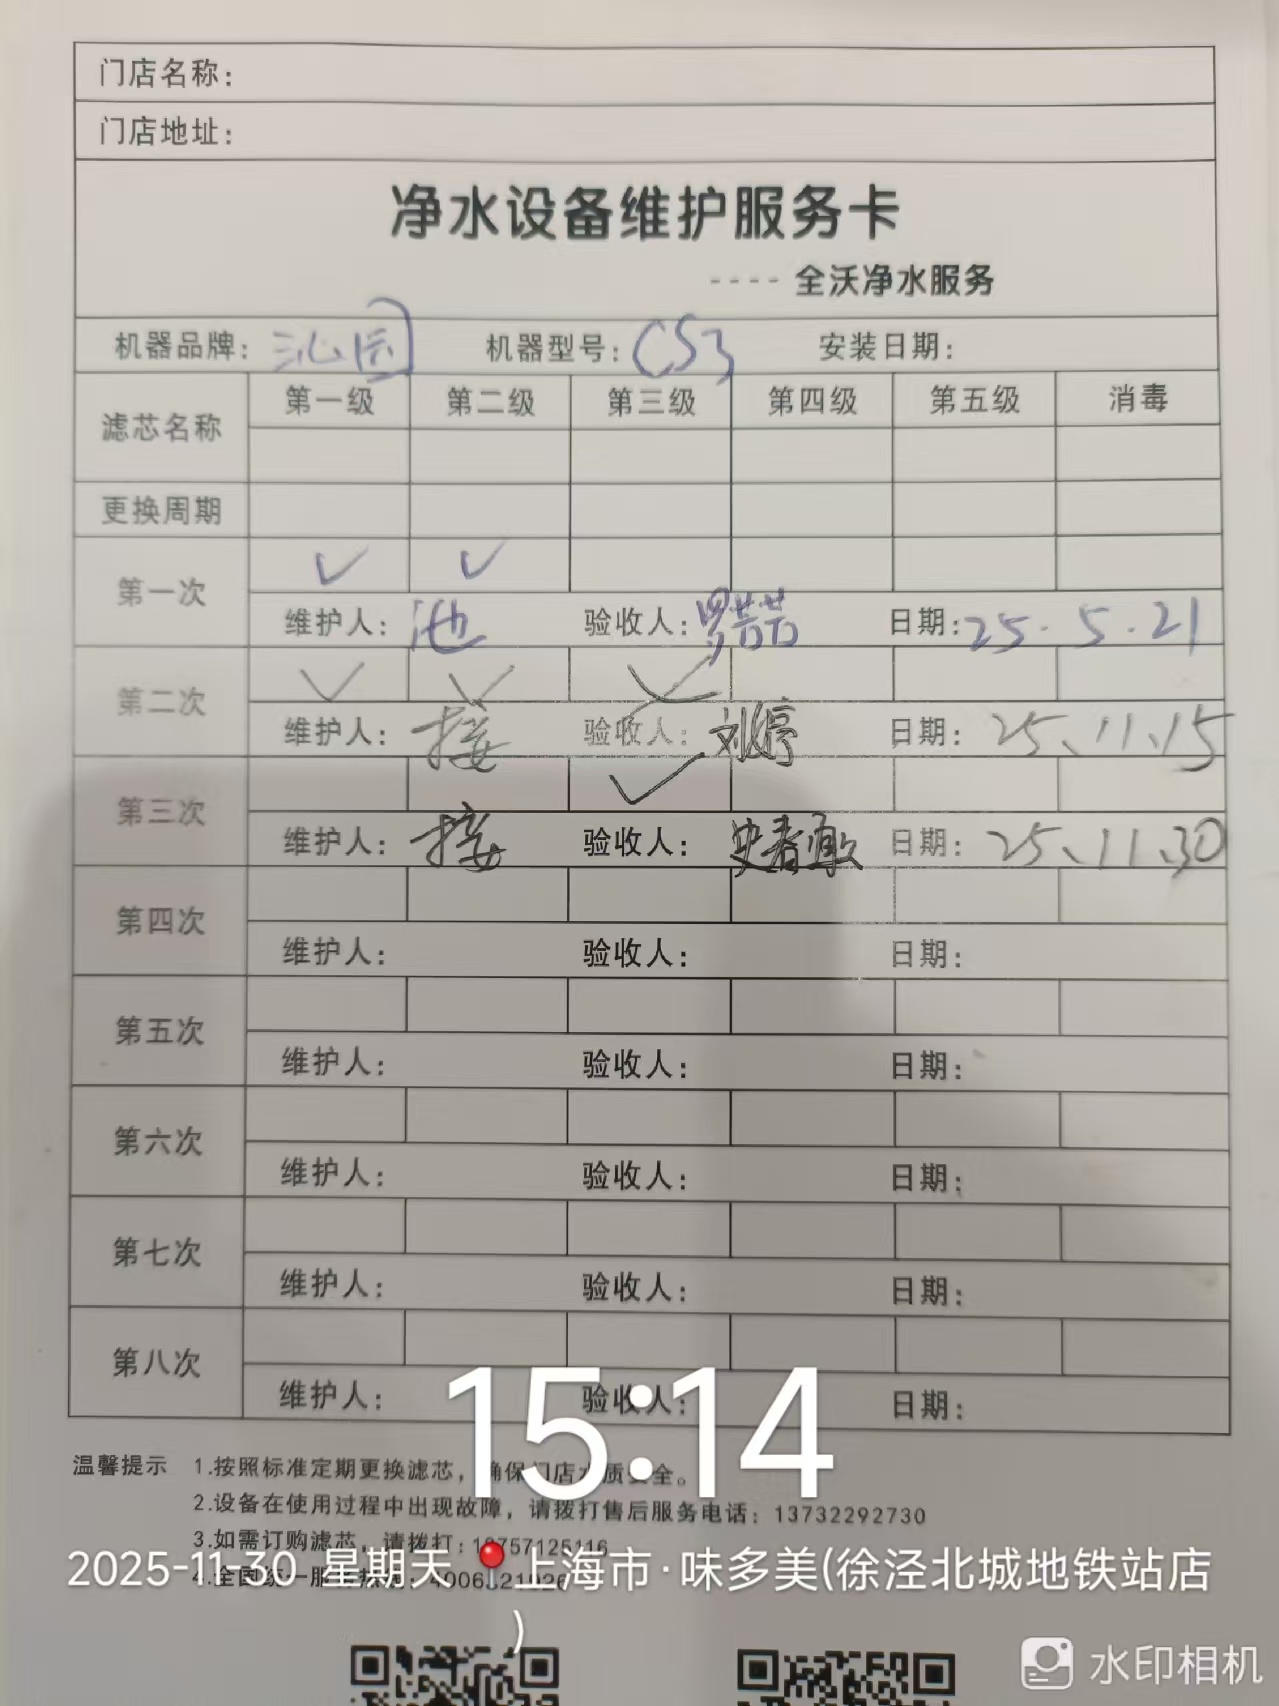 门店名称：
门店地址：
净水设备维护服务卡
---- 全沃净水服务
机器品牌：沁园 机器型号：CS3 安装日期：
滤芯名称 第一级 第二级 第三级 第四级 第五级 消毒
更换周期
第一次 ✓ ✓
维护人：池 验收人：罗芸芸 日期：25.5.21
第二次 ✓ ✓ ✓
维护人：接 验收人：刘婷 日期：25、11、15
第三次 ✓
维护人：接 验收人： 日期：25、11、30
第四次
维护人： 验收人： 日期：
第五次
维护人： 验收人： 日期：
第六次
维护人： 验收人： 日期：
第七次
维护人： 验收人： 日期：
第八次
维护人： 验收人： 日期：
15:14
温馨提示 1.按照标准定期更换滤芯，确保门店水质安全。
2.设备在使用过程中出现故障，请拨打售后服务电话：13732292730
3.如需订购滤芯，请拨打：
4.全国统一服务热线：
2025-11-30 星期天 上海市·味多美(徐泾北城地铁站店
)
水印相机